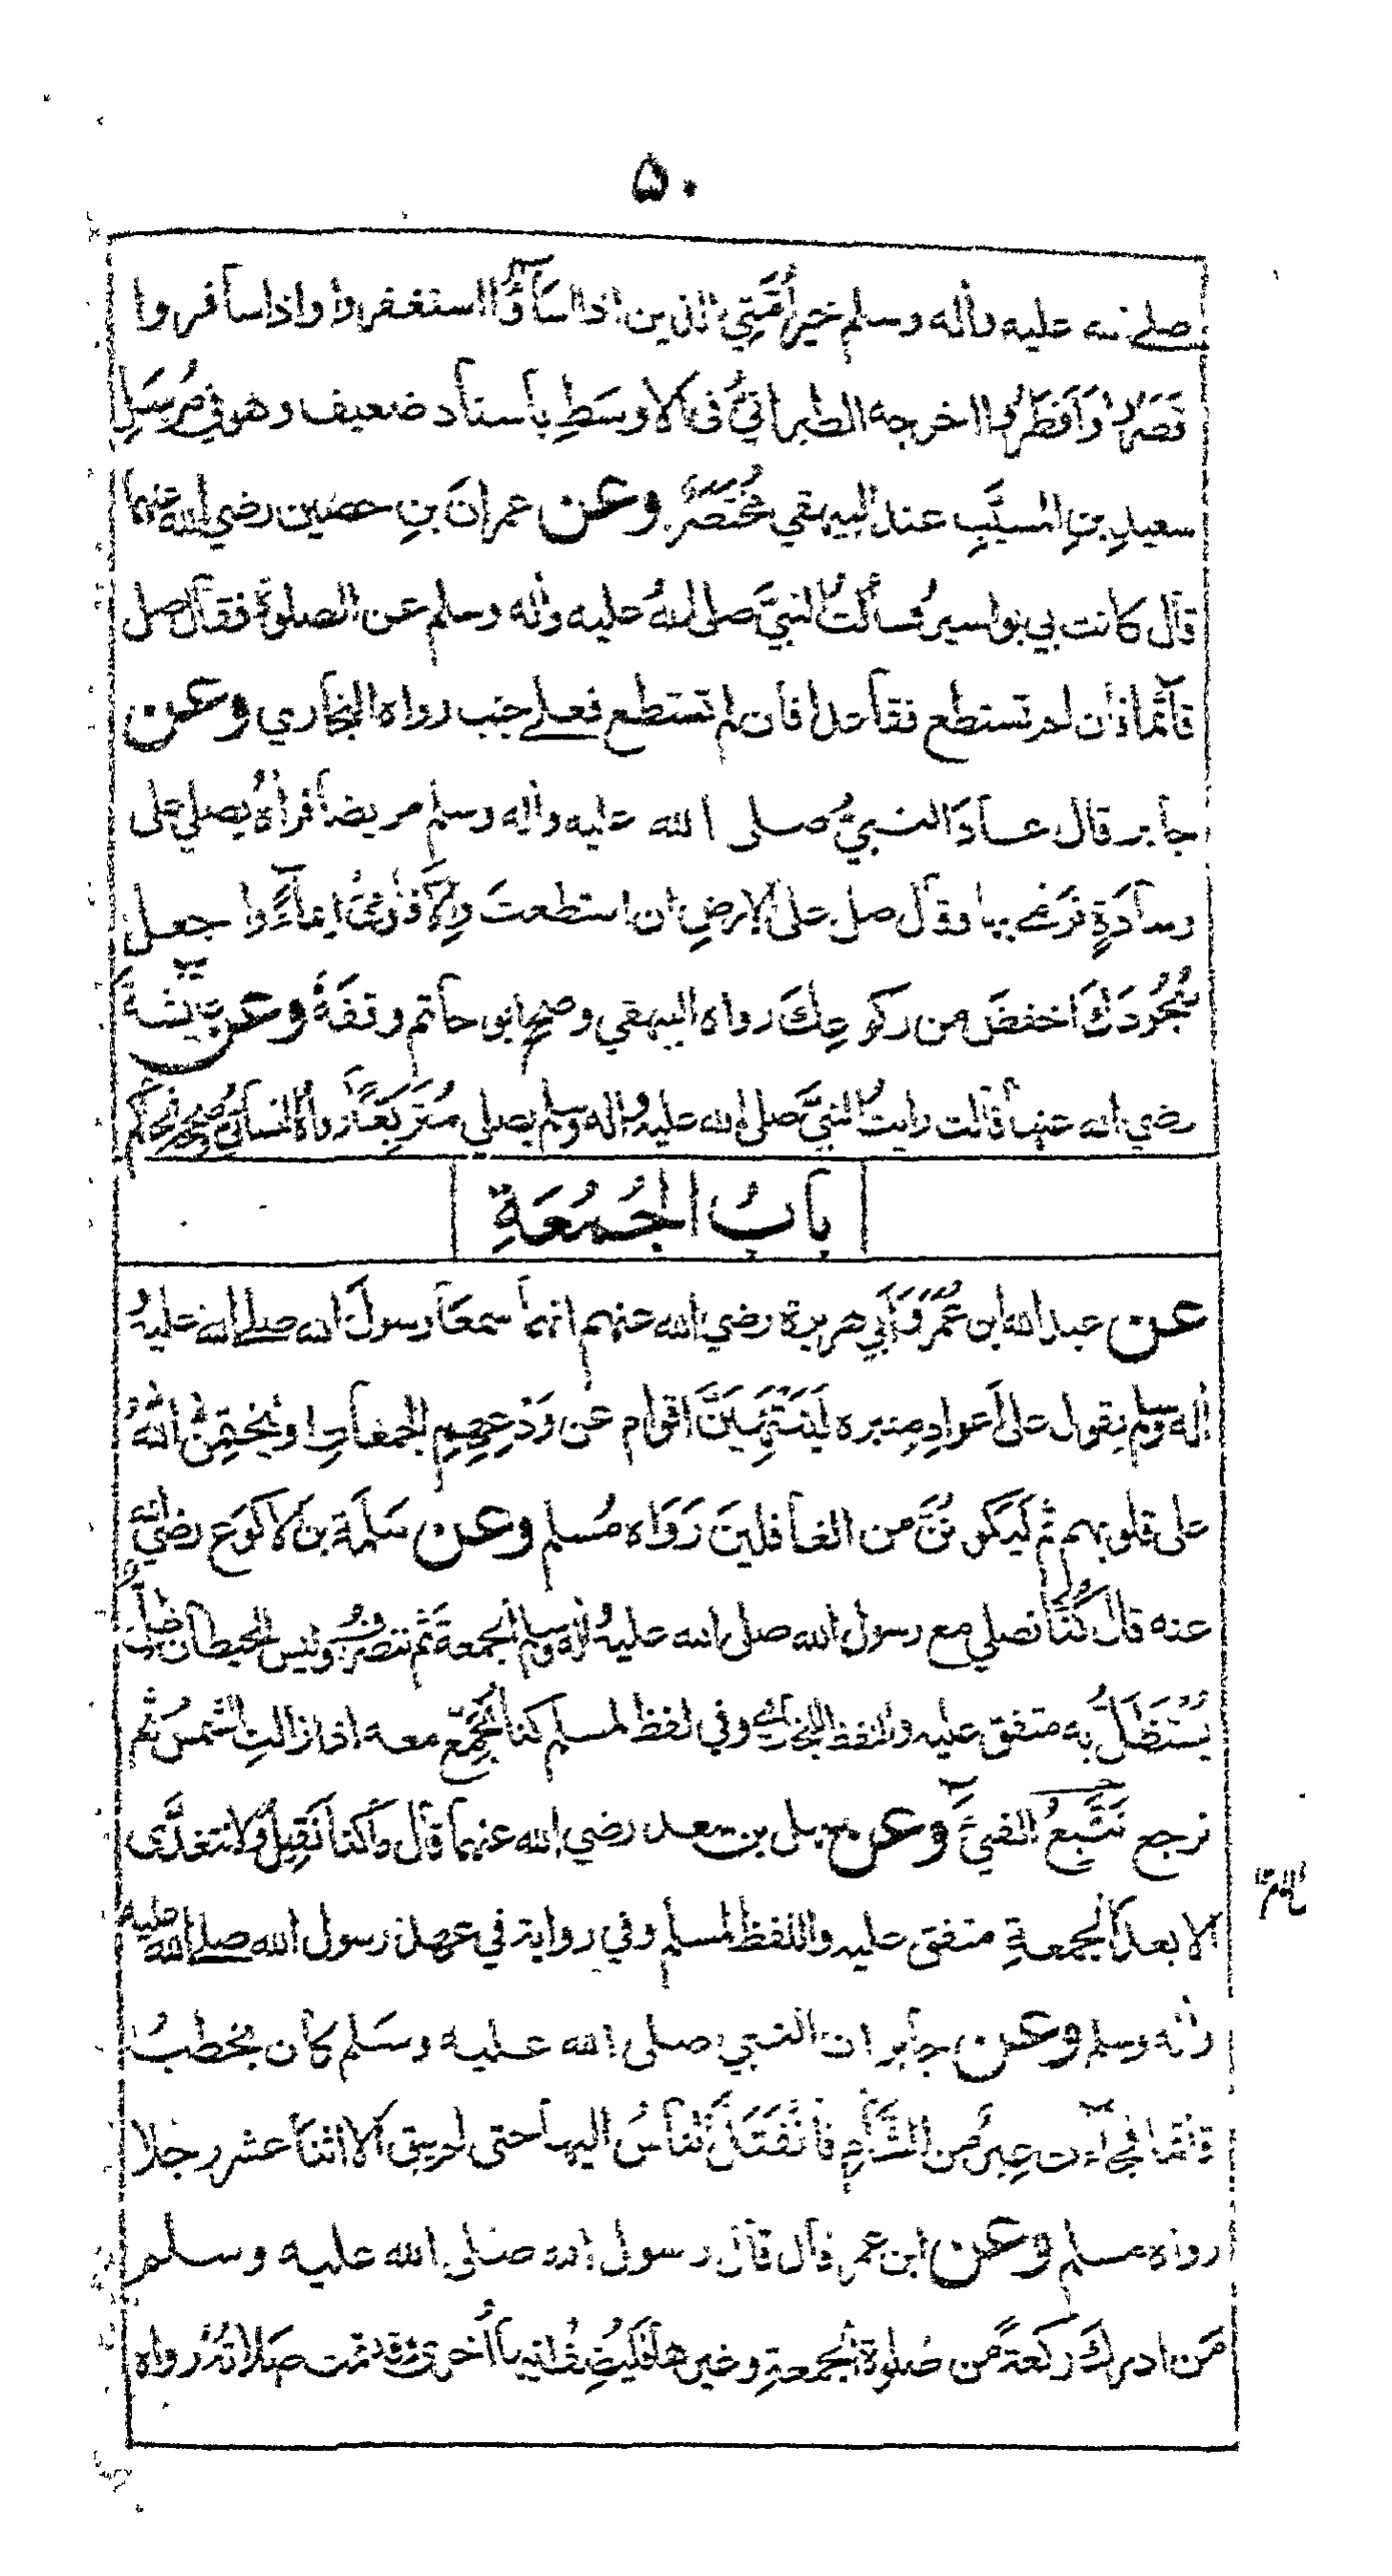 ۵۰
صلے الله عليه واٰله وسلم خير اُمَّتِي الذين اذا اسَآؤُا استغفروا واذا سافروا
قصَرُوا وَاَفطَرُوا اخرجه الطبرانيُّ في الاوسَطِ باسناد ضعيف وهو في مُرسَلِ
سعيدِ بنِ المسيَّبِ عند البيهقي مُختَصَرٌ وعن عمرانَ بنِ حصين رضي الله عنهما
قال كانت بي بواسيرُ فسألتُ النبيَّ صلى اللهُ عليه واٰله وسلم عن الصلوة فقال صل
قائما فان لم تستطع فقاعدا فان لم تستطع فعلے جنب رواه البخاري وعن
جابر قال عادَ النبيُّ صلى الله عليه واٰله وسلم مريضا فراٰهُ يصلي على
وسادَةٍ فرَمٰے بها وقال صل على الارضِ ان استطعتَ وَاِلّا فاَوْمِئْ ايماءً واجعل
سُجُودَكَ اخفضَ من ركوعِكَ رواه البيهقي وصحح ابو حاتم وقفَهٗ وعن عائشة
رضي الله عنها قالت رايتُ النبيَّ صلى الله عليه واٰله وسلم يصلي مُتَرَبِّعًا رواه النسائي وصححه الحاكم
بابُ الجُمُعَةِ
عن عبد الله ابن عُمَرَ وَاَبي هريرة رضي الله عنهم انهما سمعَا رسولَ الله صلے الله عليه و
اٰله وسلم يقول على اَعوادِ مِنبره لَيَنتَهِيَنَّ اقوام عن وَدْعِهِمِ الجمعاتِ او ليَختِمَنَّ اللهُ
على قلوبهم ثم لَيَكونُنَّ من الغافلينَ رَوَاه مُسلم وعن سَلَمَةَ بن الاكوَعِ رضي الله
عنه قال كُنَّا نصلي مع رسول الله صلى الله عليه و اٰله وسلم الجمعةَ ثم ننصرفُ وليس للحيطان ظلٌّ
يُستَظَلُّ به متفق عليه واللفظ للبخاري وفي لفظ لمسلم كنا نُجَمِّعُ معه اذا زالتِ الشمسُ ثم
نرجع نَتَتَبَّعُ الفيءَ وعن سهل بن سعد رضي الله عنهما قال ما كنا نَقِيلُ ولا نتغدَّى
الا بعدَ الجمعةِ متفق عليه واللفظ لمسلم وفي رواية في عهد رسول الله صلے الله عليه
واٰله وسلم وعن جابر ان النبي صلى الله عليه وسَلم كان يخطبُ
قائما فجاءت عِيرٌ من الشَّامِ فانفَتَلَ الناسُ اليها حتى لم يبق الا اثنا عشر رجلا
رواه مسلم وعن ابن عمر قال قال رسول الله صلى الله عليه وسلم
مَن ادرك ركعةً من صلوة الجمعةِ وغيرها فليُضِف اليها اُخرى وقد تمت صَلاتهُ رواه